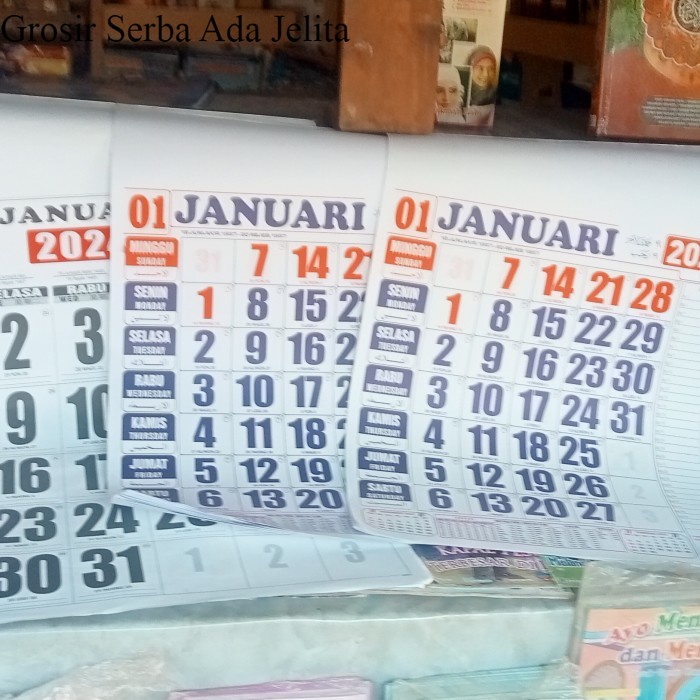 Grosir Serba Ada Jelita
JANUA
202
ELASA RABU
2 3
9 10
16 17
23 24 25
30 31 1 2 3
01 JANUARI
MINGGU SUNDAY 31 7 14 21
SENIN MONDAY 1 8 15 22
SELASA TUESDAY 2 9 16 2
RABU WEDNESDAY 3 10 17 2
KAMIS THURSDAY 4 11 18 2
JUMAT FRIDAY 5 12 19
SABTU 6 13 20
01 JANUARI 20
MINGGU SUNDAY 31 7 14 21 28
SENIN MONDAY 1 8 15 22 29
SELASA TUESDAY 2 9 16 23 30
RABU WEDNESDAY 3 10 17 24 31
KAMIS THURSDAY 4 11 18 25 1
JUMAT FRIDAY 5 12 19 26 2
SABTU SATURDAY 6 13 20 27 3
Ayo Men
dan Me